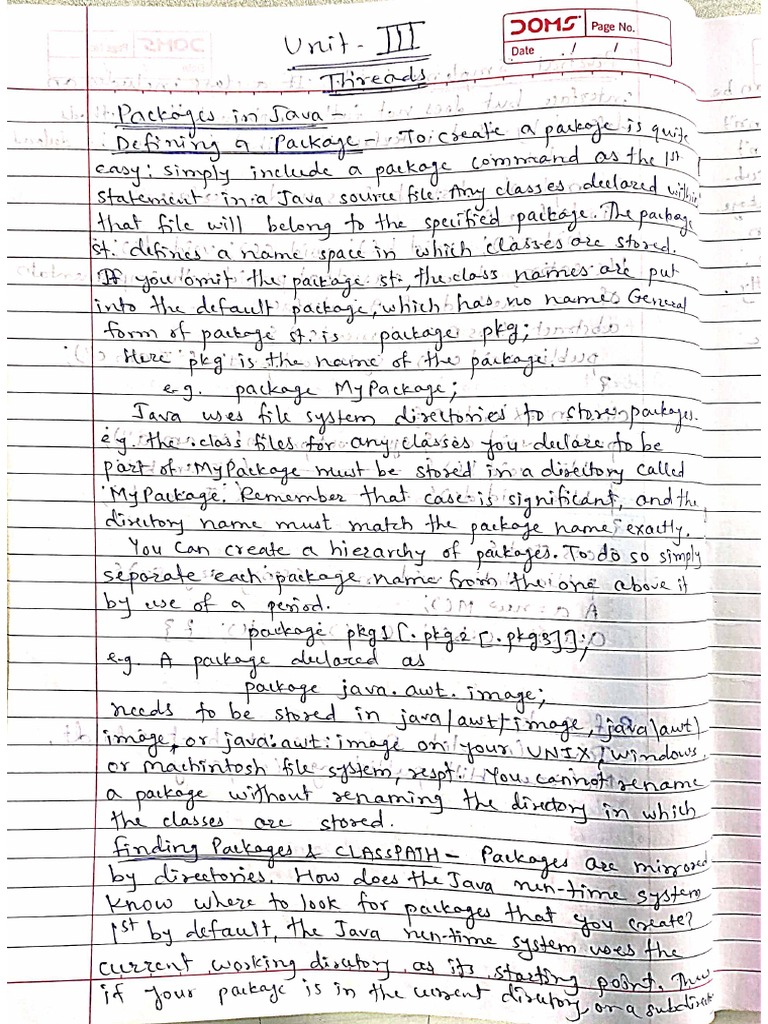 DOMS Page No.
Date / /
Unit - III
Threads
Packages in Java -
Defining a Package - To create a package is quite
easy: simply include a package command as the 1st
statement in a Java source file. Any classes declared within
that file will belong to the specified package. The package
st. defines a name space in which classes are stored.
If you omit the package st., the class names are put
into the default package, which has no name. General
form of package st. is package pkg;
Here pkg is the name of the package.
e.g. package MyPackage;
Java uses file system directories to store packages.
e.g. the .class files for any classes you declare to be
part of MyPackage must be stored in a directory called
MyPackage. Remember that case is significant, and the
directory name must match the package name exactly.
You can create a hierarchy of packages. To do so simply
separate each package name from the one above it
by use of a period.
package pkg1[.pkg2[.pkg3]];
e.g. A package declared as
package java.awt.image;
needs to be stored in java/awt/image, java\awt\
image, or java:awt:image on your UNIX, windows
or machintosh file system, respt. You cannot rename
a package without renaming the directory in which
the classes are stored.
Finding Packages & CLASSPATH - Packages are mirrored
by directories. How does the Java run-time system
know where to look for packages that you create?
1st by default, the Java run-time system uses the
current working dirctory as its starting point. Thus
if your package is in the current directory, or a subdirect